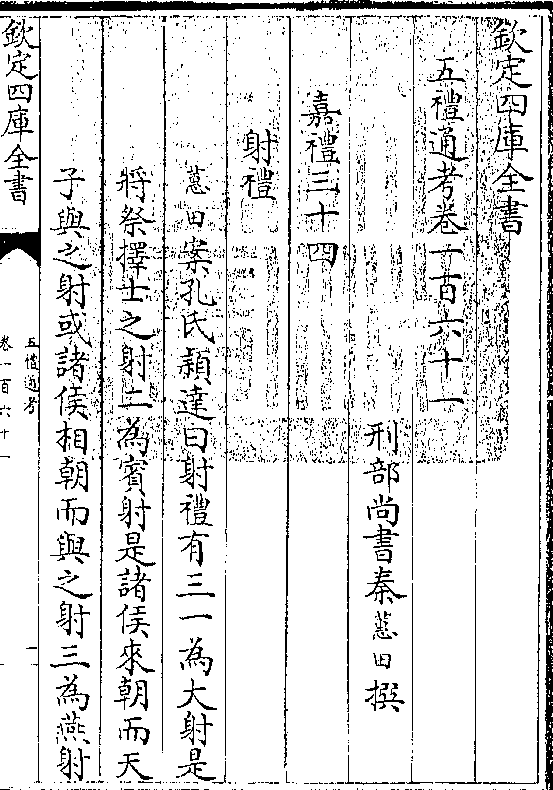 欽定四庫全書
五禮通考卷一百六十一
刑部尚書秦蕙田撰
嘉禮三十四
射禮
蕙田案孔氏穎達曰射禮有三一為大射是
將祭擇士之射二為賓射是諸侯來朝而天
子與之射或諸侯相朝而與之射三為燕射
欽定四庫全書
五禮通考
卷一百六十一
一